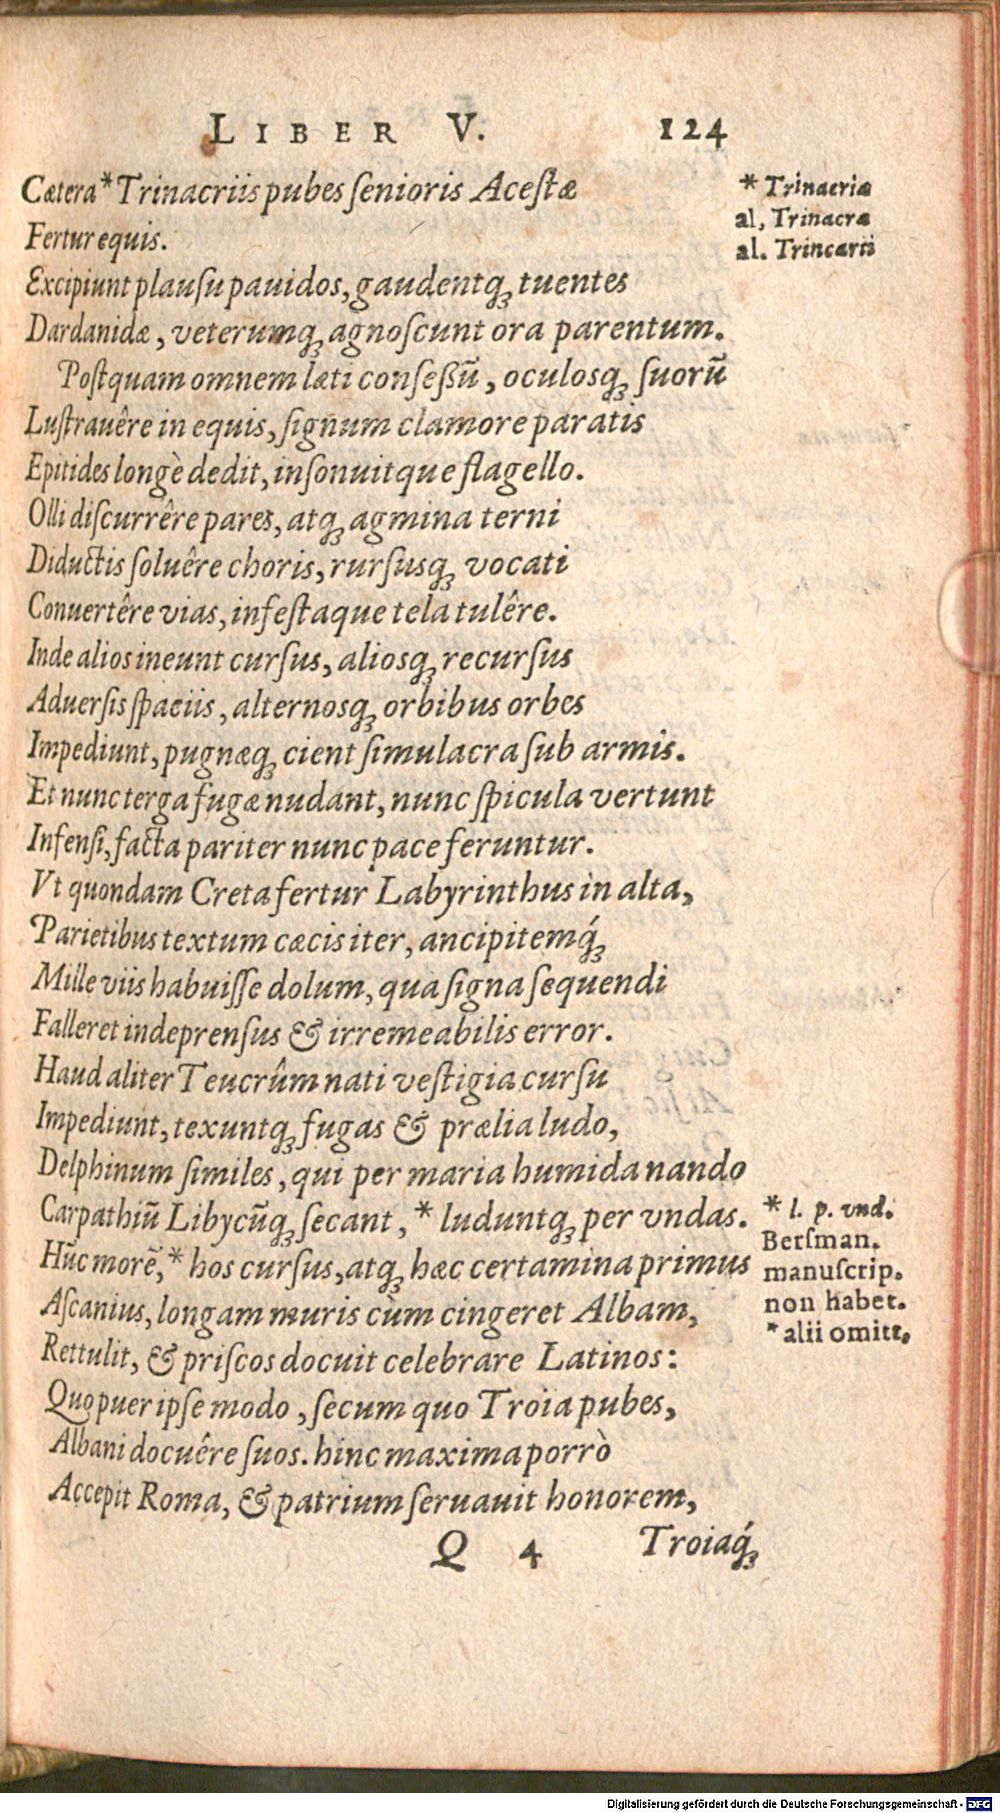 LIBER V. 124
Cætera * Trinacriis pubes ſenioris Aceſtæ
Fertur equis.
Excipiunt plauſu pauidos, gaudentq́ꝫ tuentes
Dardanidæ, veterumqꝫ agnoſcunt ora parentum.
Poſtquam omnem læti conſeßũ, oculosqꝫ ſuorũ
Luſtrauêre in equis, ſignum clamore paratis
Epitides longè dedit, inſonuitque flagello.
Olli diſcurrêre pares, atqꝫ agmina terni
Diductis ſoluêre choris, rurſusqꝫ vocati
Conuertêre vias, infeſtaque tela tulêre.
Inde alios ineunt curſus, aliosqꝫ recurſus
Aduerſis ſpaciis, alternosqꝫ orbibus orbes
Impediunt, pugnæqꝫ cient ſimulacra ſub armis.
Et nunc terga fugæ nudant, nunc ſpicula vertunt
Infenſi, facta pariter nunc pace feruntur.
Vt quondam Creta fertur Labyrinthus in alta,
Parietibus textum cæcis iter, ancipitemq́ꝫ
Mille viis habuiſſe dolum, qua ſigna ſequendi
Falleret indeprenſus & irremeabilis error.
Haud aliter Teucrûm nati veſtigia curſu
Impediunt, texuntqꝫ fugas & prælia ludo,
Delphinum ſimiles, qui per maria humida nando
Carpathiũ Libycũqꝫ ſecant, * luduntqꝫ per vndas.
Hũc morẽ, * hos curſus, atqꝫ hæc certamina primus
Aſcanius, longam muris cùm cingeret Albam,
Rettulit, & priſcos docuit celebrare Latinos:
Quo puer ipſe modo, ſecum quo Troia pubes,
Albani docuêre ſuos. hinc maxima porrò
Accepit Roma, & patrium ſeruauit honorem,
Q 4 Troiaq́ꝫ
* Trinacriæ
al, Trinacræ
al. Trincarii
* l. p. vnd.
Berſman.
manuſcrip.
non habet.
* alii omitt.
Digitalisierung gefördert durch die Deutsche Forschungsgemeinschaft - DFG